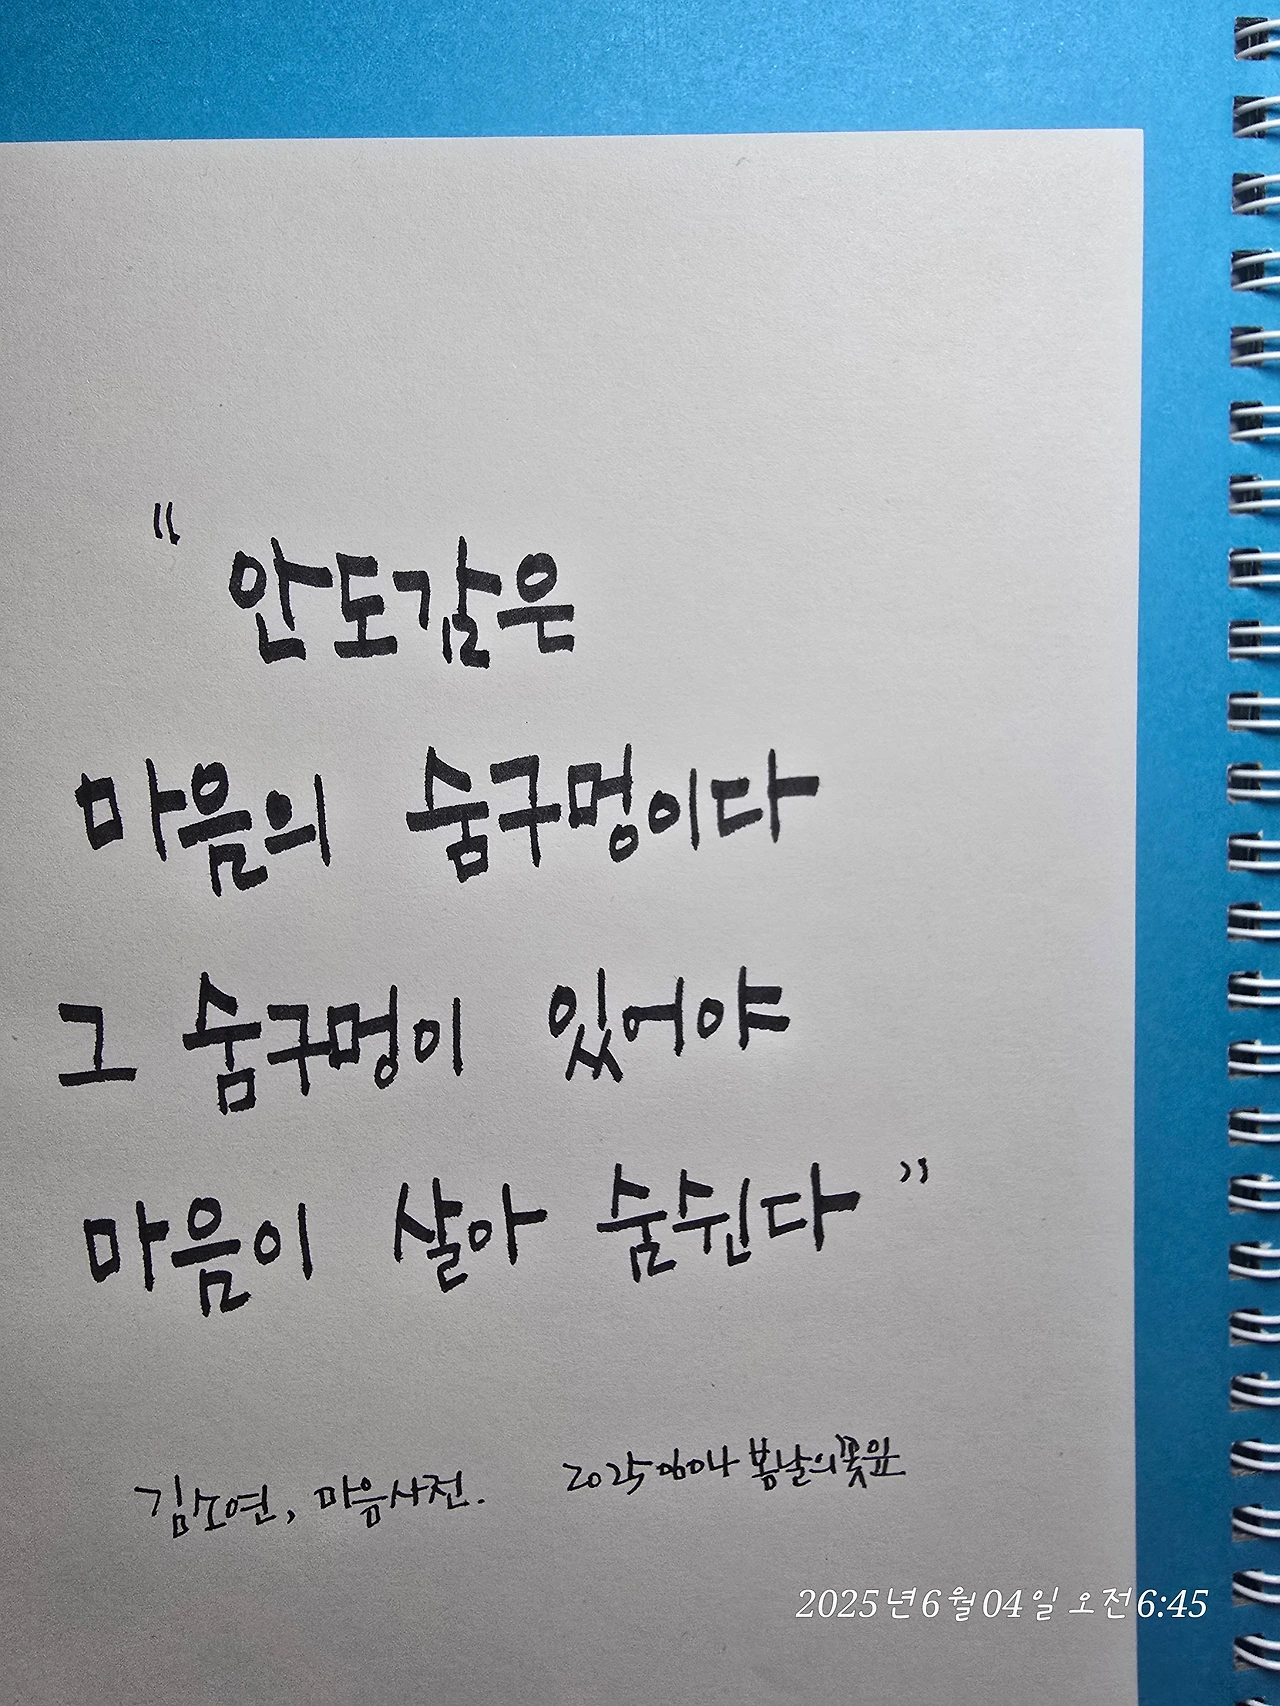 "안도감은
마음의 숨구멍이다
그 숨구멍이 있어야
마음이 살아 숨쉰다"
김소연, 마음사전. 20250604 봄날의꽃잎
2025년 6월 04일 오전 6:45